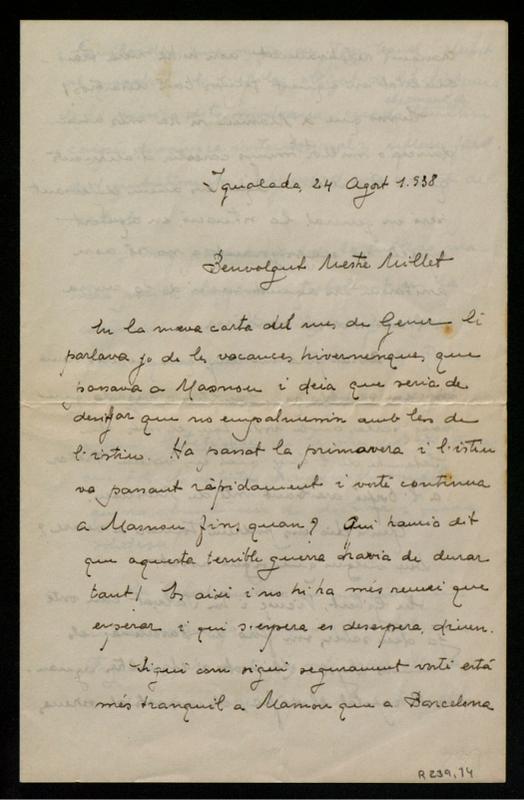 Igualada, 24 Agost 1.938
Benvolgut Mestre Millet
En la meva carta del mes de Gener li
parlava jo de les vacances hivernenques que
passava a Masnou i deia que seria de
desitjar que no empalmessin amb les de
l'istiu. Ha passat la primavera i l'istiu
va passant ràpidament i vostè continua
a Masnou fins, quan? Qui havia dit
que aquesta terrible guerra havia de durar
tant! Es així i no hi ha més remei que
esperar i qui s'espera es desespera, diuen.
Sigui com sigui segurament vostè està
més tranquil a Masnou que a Barcelona
R 239, 14